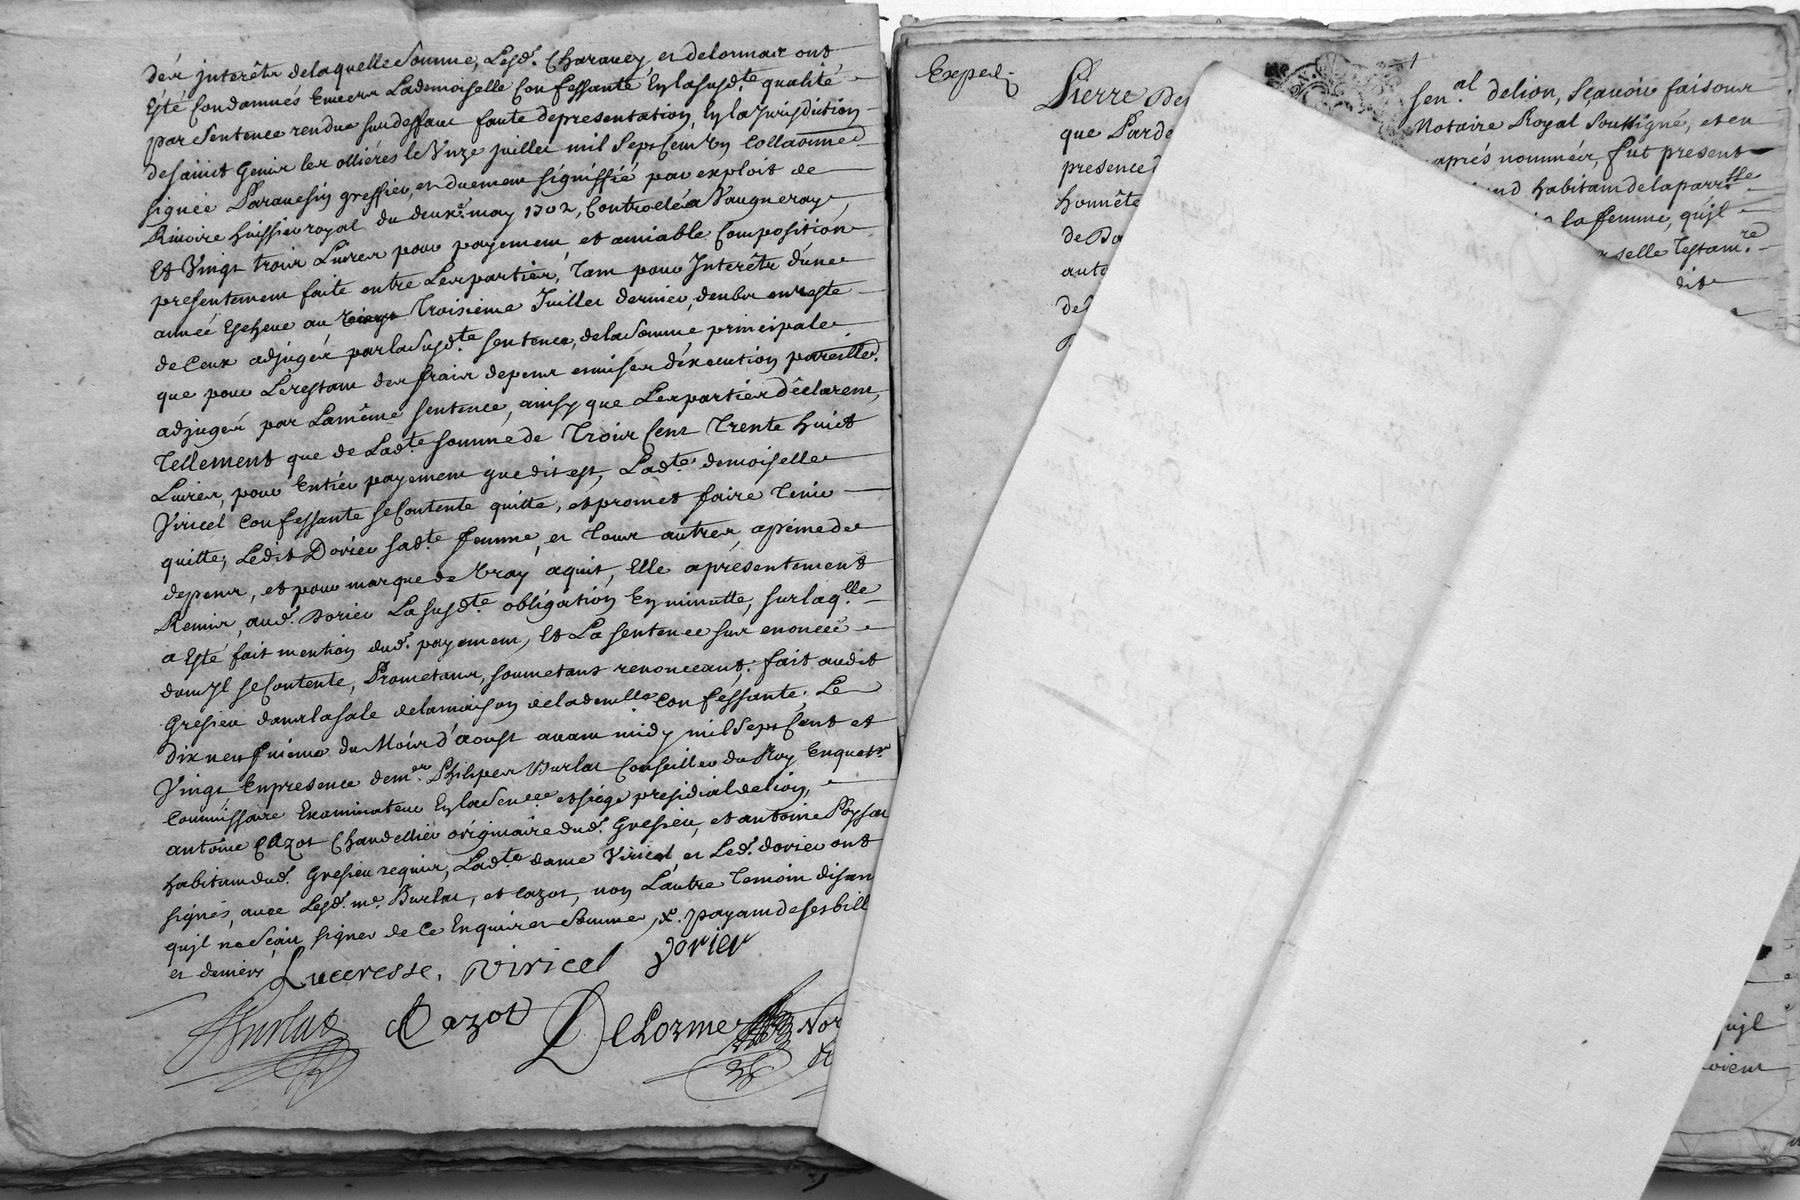 des jnterêts delaquelle somme, Lesd. Charavey et delormas ont
Esté Condamnés Envers Lademoiselle Confessante Enlasusd.te qualité
par Sentence rendue sur deffaut faute depresentation, Enla Jurisdiction
desainct Genis les ollieres le Unze juillet mil Sept Cent Un Collaonné
signée Paravesin greffier, et duement signiffié par exploit de
Rivoire huissier royal du deuxe. may 1702, Controllé a Vaugneray,
Et Vingt trois Livres pour payement, et amiable Composition
presentement faite entre Les parties, tant pour Interêts d'une
année Escheue au troisieme Juillet dernier, deube en reste
de Ceux adjugés par la Susd.te sentence, dela Somme principale
que pour Lerestant des frais depens emises d'execution pareille.t
adjugés par Lamême sentence, ainsy que Les parties déclarent,
Tellement que de Lad.te somme de Trois Cent Trente huict
Livres, pour Entier payement que dit est, Lad.te demoiselle
Viricel Confessante se Contente quitte, et promet faire tenir
quitte, Ledit Dorier sad.te femme, et tous autres, apeine de
depens, et pour marque de Vray aquit, Elle a présentement
Remis, aud. Dorier La susd.te obligation En minutte, sur laq.lle
a Esté fait mention dud. payement, Et La sentence sus enoncée
dont Il se Contente, Prometant, soumetant renonceant, fait audit
Gresieu dans la sale de la maison de la dem.lle Confessante, Le
Dix neufvieme du Mois d'aoust avant midy mil Sept Cent et
Vingt En presence de m.er Philipes Burlat Conseiller du Roy Enquest.r
Commissaire Examinateur En la Sen.cée et siége presidial de lion,
antoine Cazot Chandellier originaire dud. Gresieu, et antoine Poysat
habitant dud. Gresieu requis, Lad.te dame Viricel, et Led. dorier ont
signés, avec Lesd. me. Burlat, et Cazot, non L'autre temoin disan
qu'jl ne scait signer de ce Enquis et Sommé, x. payant de ses bill
et deniers
Luccresse. Viricel Dorier
Burlat Cazot DeLorme Not
Exped.
Pierre De
que Parde
presence
honnête
de Do
auto
de
sen.al delion, sçavoir faisons
Notaire Royal Soussigné, et en
aprés nommés, fut present
habitant de la parr.sse
la femme, qu'jl
selle testam.re
dit
qujl
oient